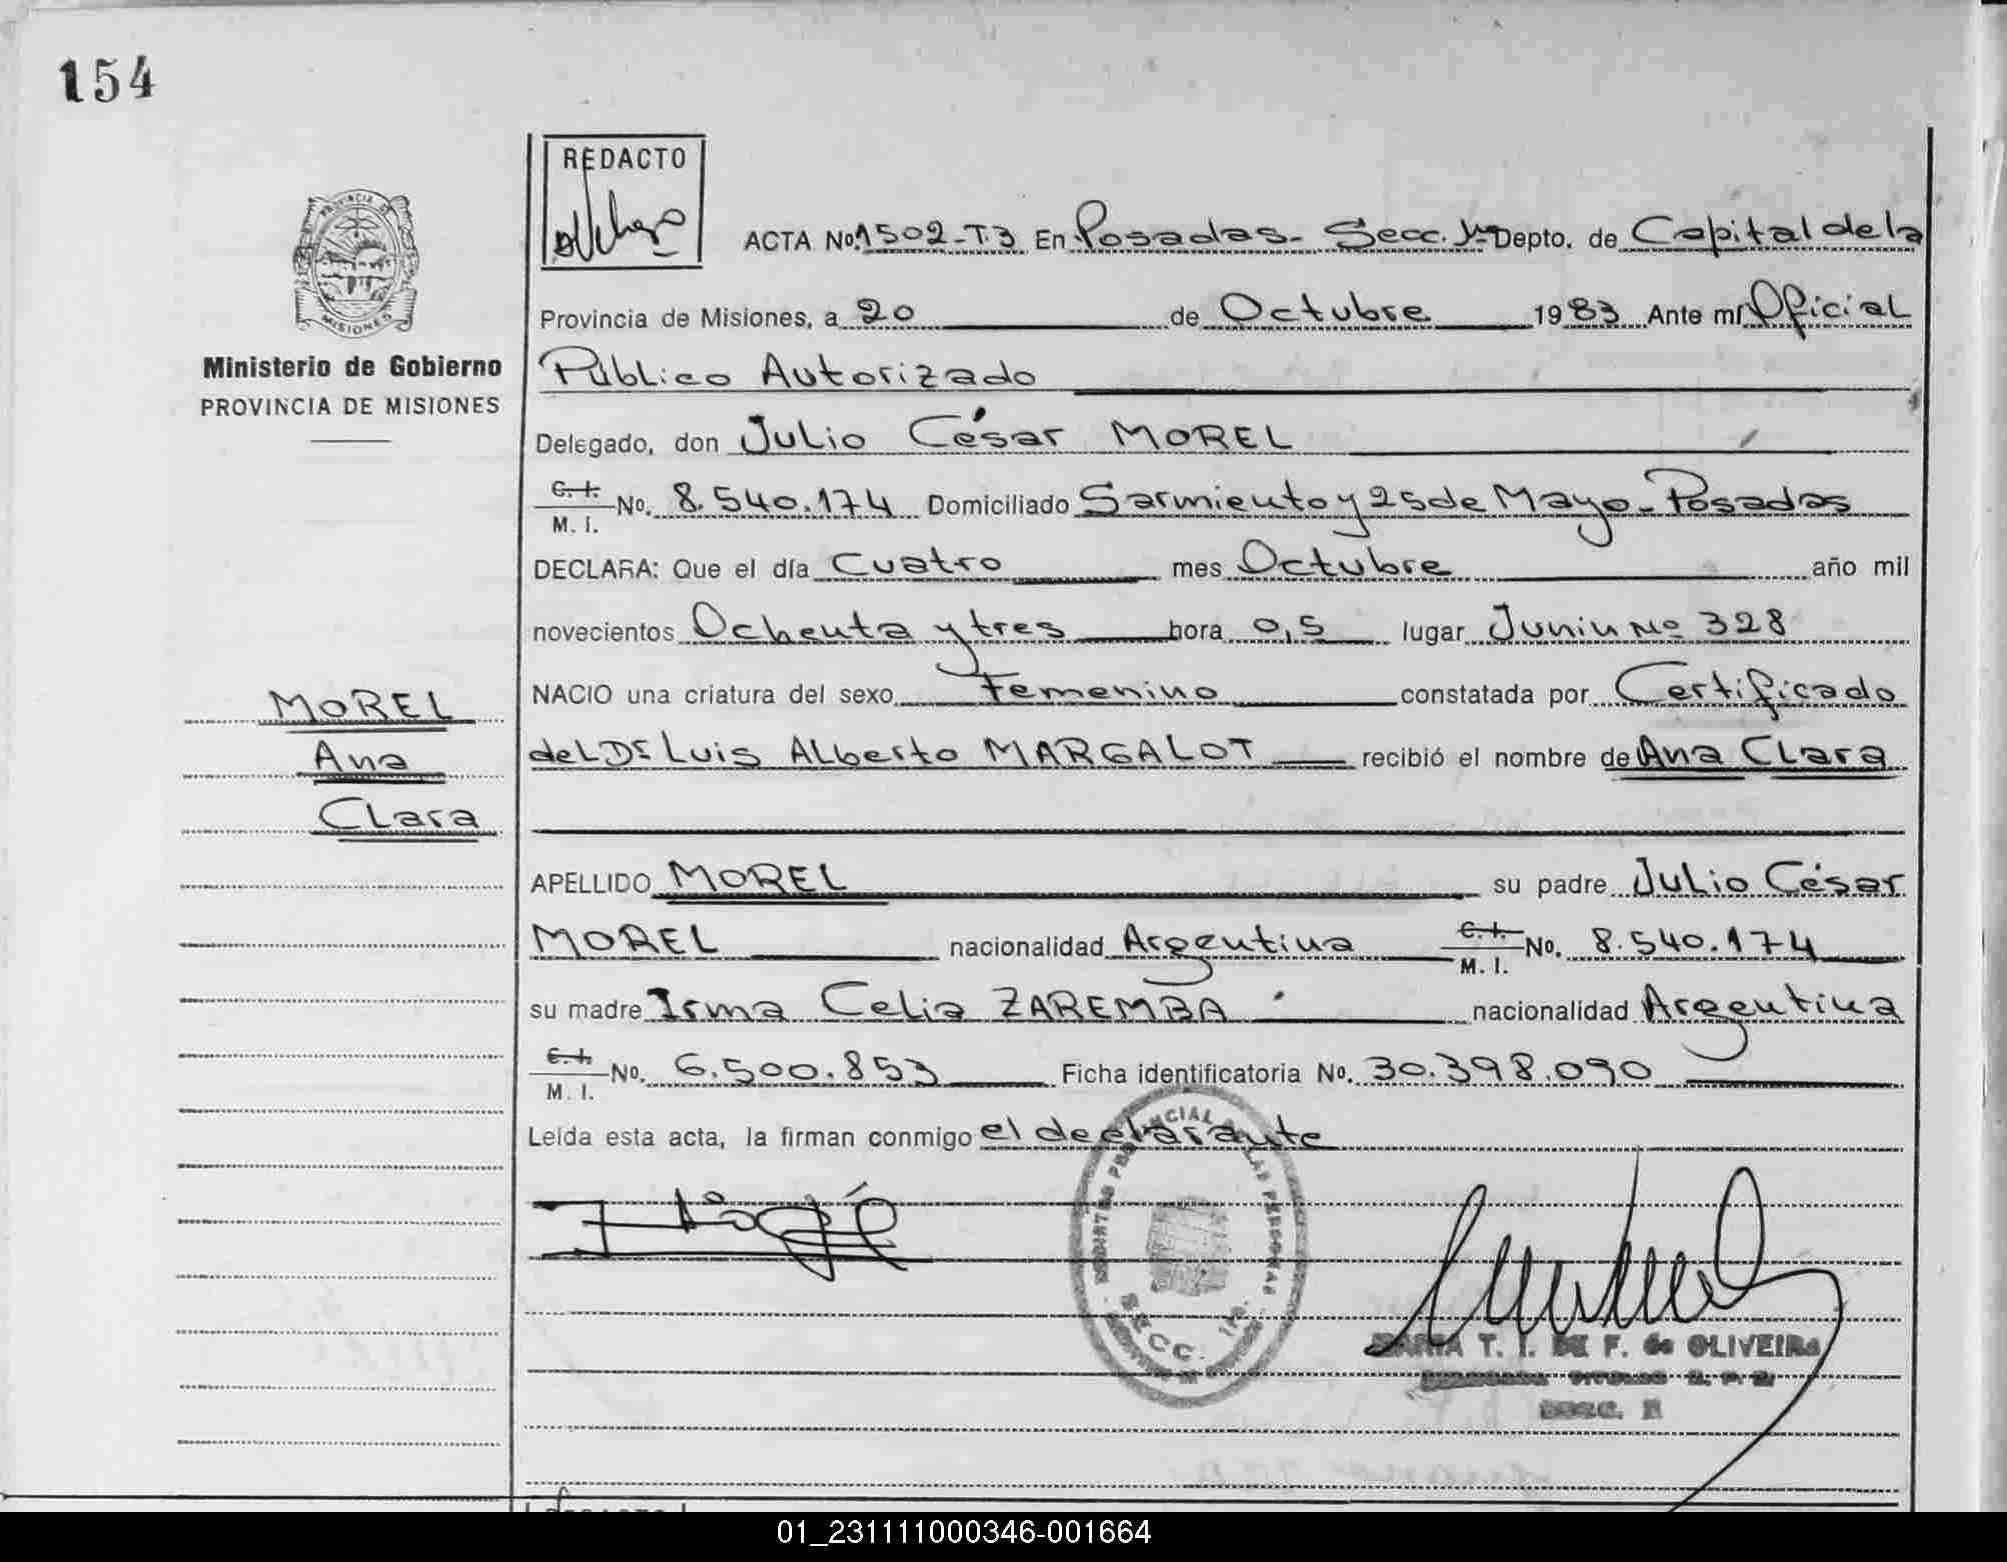 154
REDACTO
PROVINCIA DE
MISIONES
Ministerio de Gobierno
PROVINCIA DE MISIONES
ACTA No. 1502-T.3 En Posadas- Secc. 1ra Depto. de Capital de la
Provincia de Misiones, a 20 de Octubre 1983 Ante mí Oficial
Público Autorizado
Delegado, don Julio César MOREL
C. I. M. I. No. 8.540.174 Domiciliado Sarmiento y 25 de Mayo - Posadas
DECLARA: Que el día Cuatro mes Octubre año mil
novecientos Ochenta y tres hora 0,5 lugar Junin No 328
NACIO una criatura del sexo Femenino constatada por Certificado
del Dr Luis Alberto MARGALOT recibió el nombre de Ana Clara
MOREL
Ana
Clara
APELLIDO MOREL su padre Julio César
MOREL nacionalidad Argentina C. I. M. I. No. 8.540.174
su madre Irma Celia ZAREMBA nacionalidad Argentina
C. I. M. I. No. 6.500.853 Ficha identificatoria No. 30.398.090
Leída esta acta, la firman conmigo el declarante
SECC. 1ra.
MARIA T. I. DE F. de OLIVEIRA
REDACTO
01_231111000346-001664